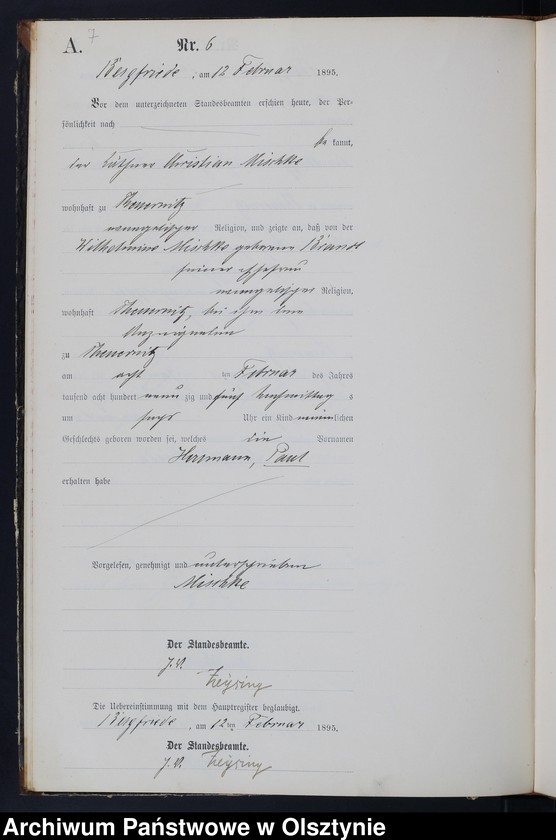 A. 7 Nr. 6
Bergfriede, am 12 Februar 1895.
Vor dem unterzeichneten Standesbeamten erschien heute, der Per-
sönlichkeit nach
be kannt,
der Christian Mischke
wohnhaft zu Theuernitz
evangelischer Religion, und zeigte an, daß von der
Wilhelmine Mischke geborene Brandt
seiner Ehefrau
evangelischer Religion,
wohnhaft Theuernitz, bei ihm dem
Anzeigenden
zu Theuernitz
am acht ten Februar des Jahres
tausend acht hundert neun zig und fünf Nachmittag s
um sechs Uhr ein Kind männlichen
Geschlechts geboren worden sei, welches die Vornamen
Herrmann, Paul
erhalten habe
Vorgelesen, genehmigt und unterschrieben
Mischke
Der Standesbeamte.
J. V.
Die Uebereinstimmung mit dem Hauptregister beglaubigt.
Bergfriede, am 12ten Februar 1895.
Der Standesbeamte.
J. V.
Archiwum Państwowe w Olsztynie